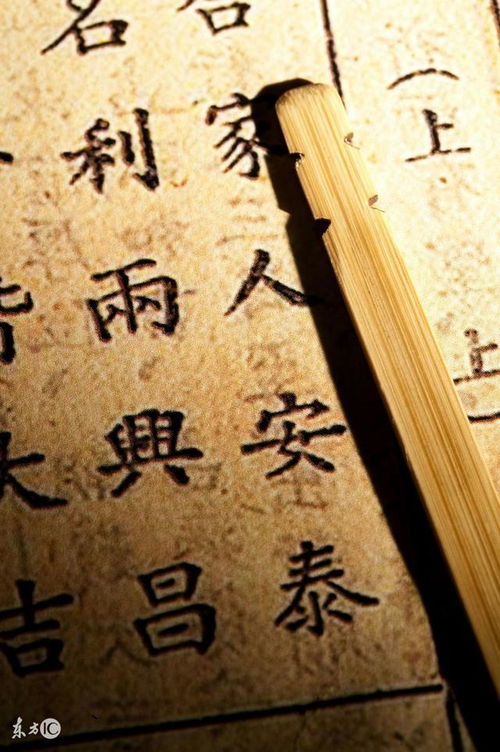 （上上）
合家人安泰
名利兩興昌
皆大吉
东方IC